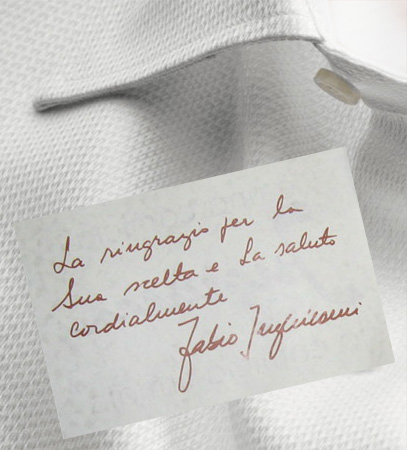 La ringrazio per la
Sua scelta e La saluto
cordialmente
Fabio Inghilesmi